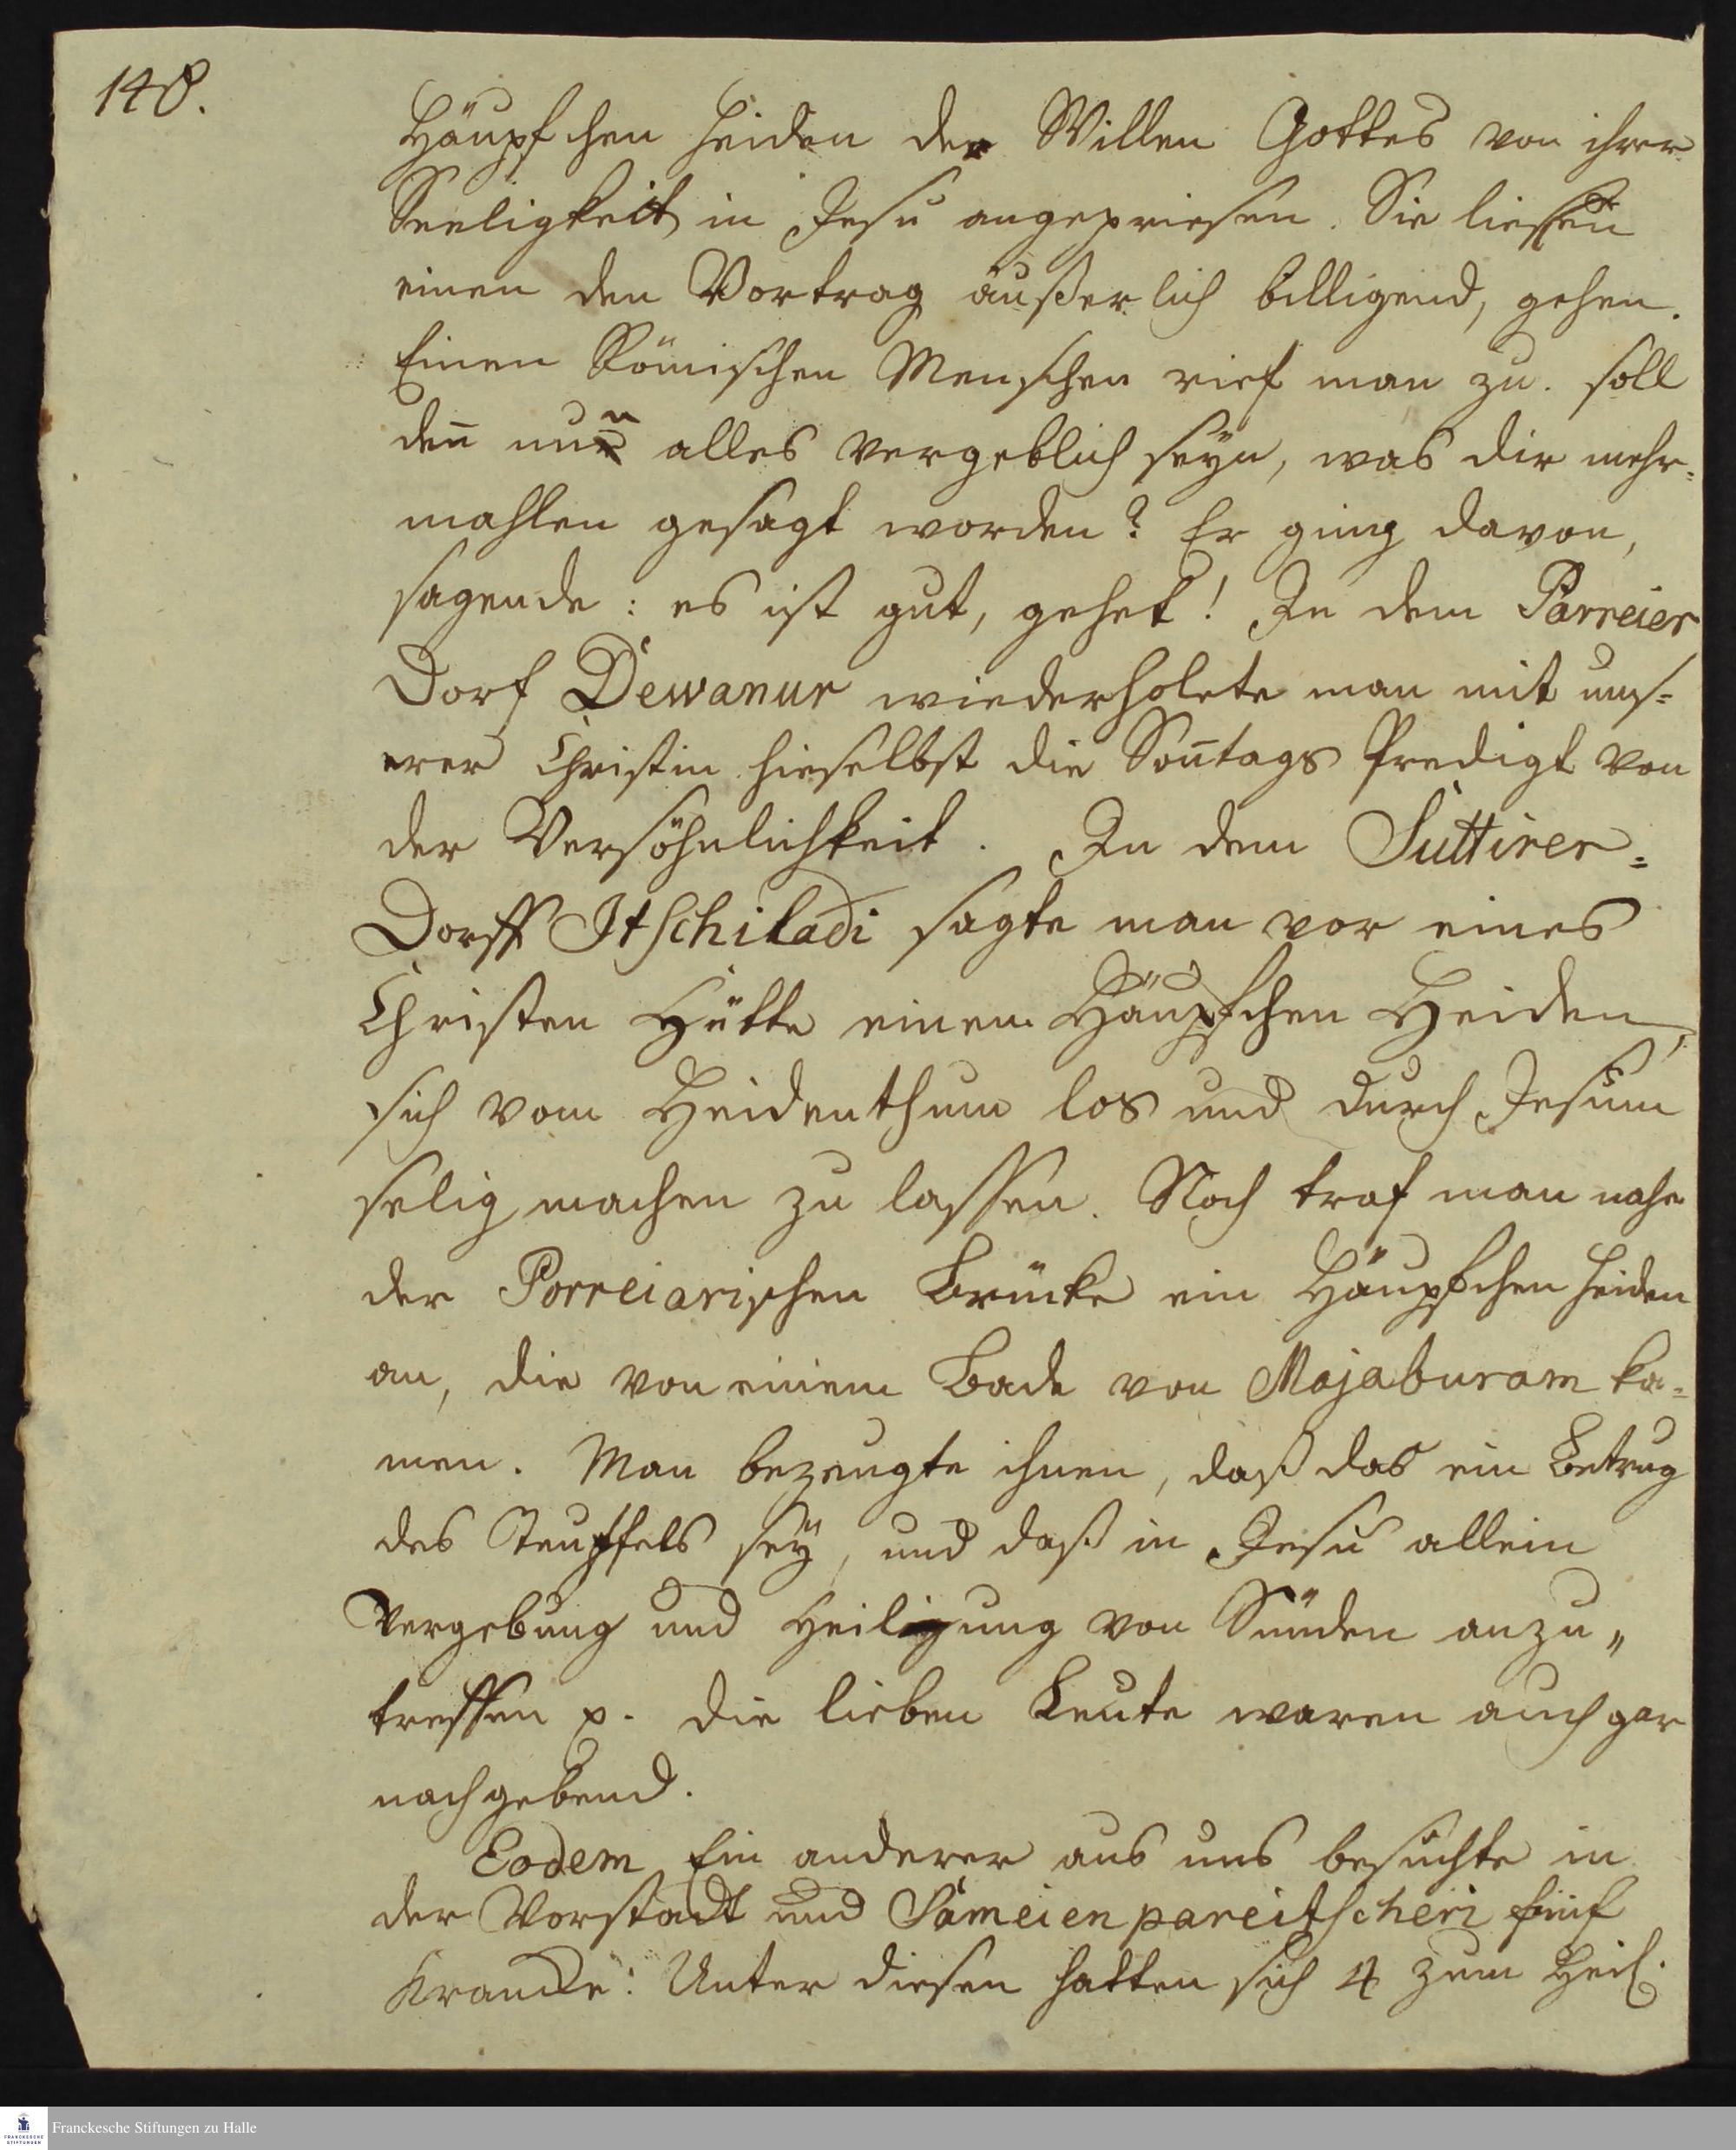 148.
Häupfchen Heiden der Willen Gottes von ihrer
Seeligkeit in Jesu angepriesen. Sie liessen
einen den Vortrag äußerlich billigend, gehen.
Einen Römischen Menschen rief man zu. soll
deñ nun alles vergeblich seyn, was dir mehr-
mahlen gesagt worden? Er ging davon,
sagende: es ist gut, gehet! In dem Parreier
Dorf Dewanur wiederholete man mit uns-
erer Christin hieselbst die Soñtags Predigt von
der Versöhnlichkeit. In dem Suttirer-
Dorff Itschiladi sagte man vor eines
Christen Hütte einem Häupfchen Heiden,
sich vom Heidenthum los und durch Jesum
selig machen zu lassen. Noch traf man nahe
der Porreiarischen Brücke ein Häupfchen Heiden
an, die von einem Bade von Majaburam ka-
men. Man bezeugte ihnen, daß das ein Betrug
des Teuffels seÿ, und daß in Jesu allein
Vergebung und Heiligung von Sünden anzu„
treffen p. die lieben Leute waren auch gar
nachgebend.
Eodem Ein anderer aus uns besuchte in
der Vorstadt und Sameienpareitscheri fünf
Krancke: Unter diesen hatten sich 4 zum Heil.
Franckesche Stiftungen zu Halle
FRANCKESCHE
STIFTUNGEN